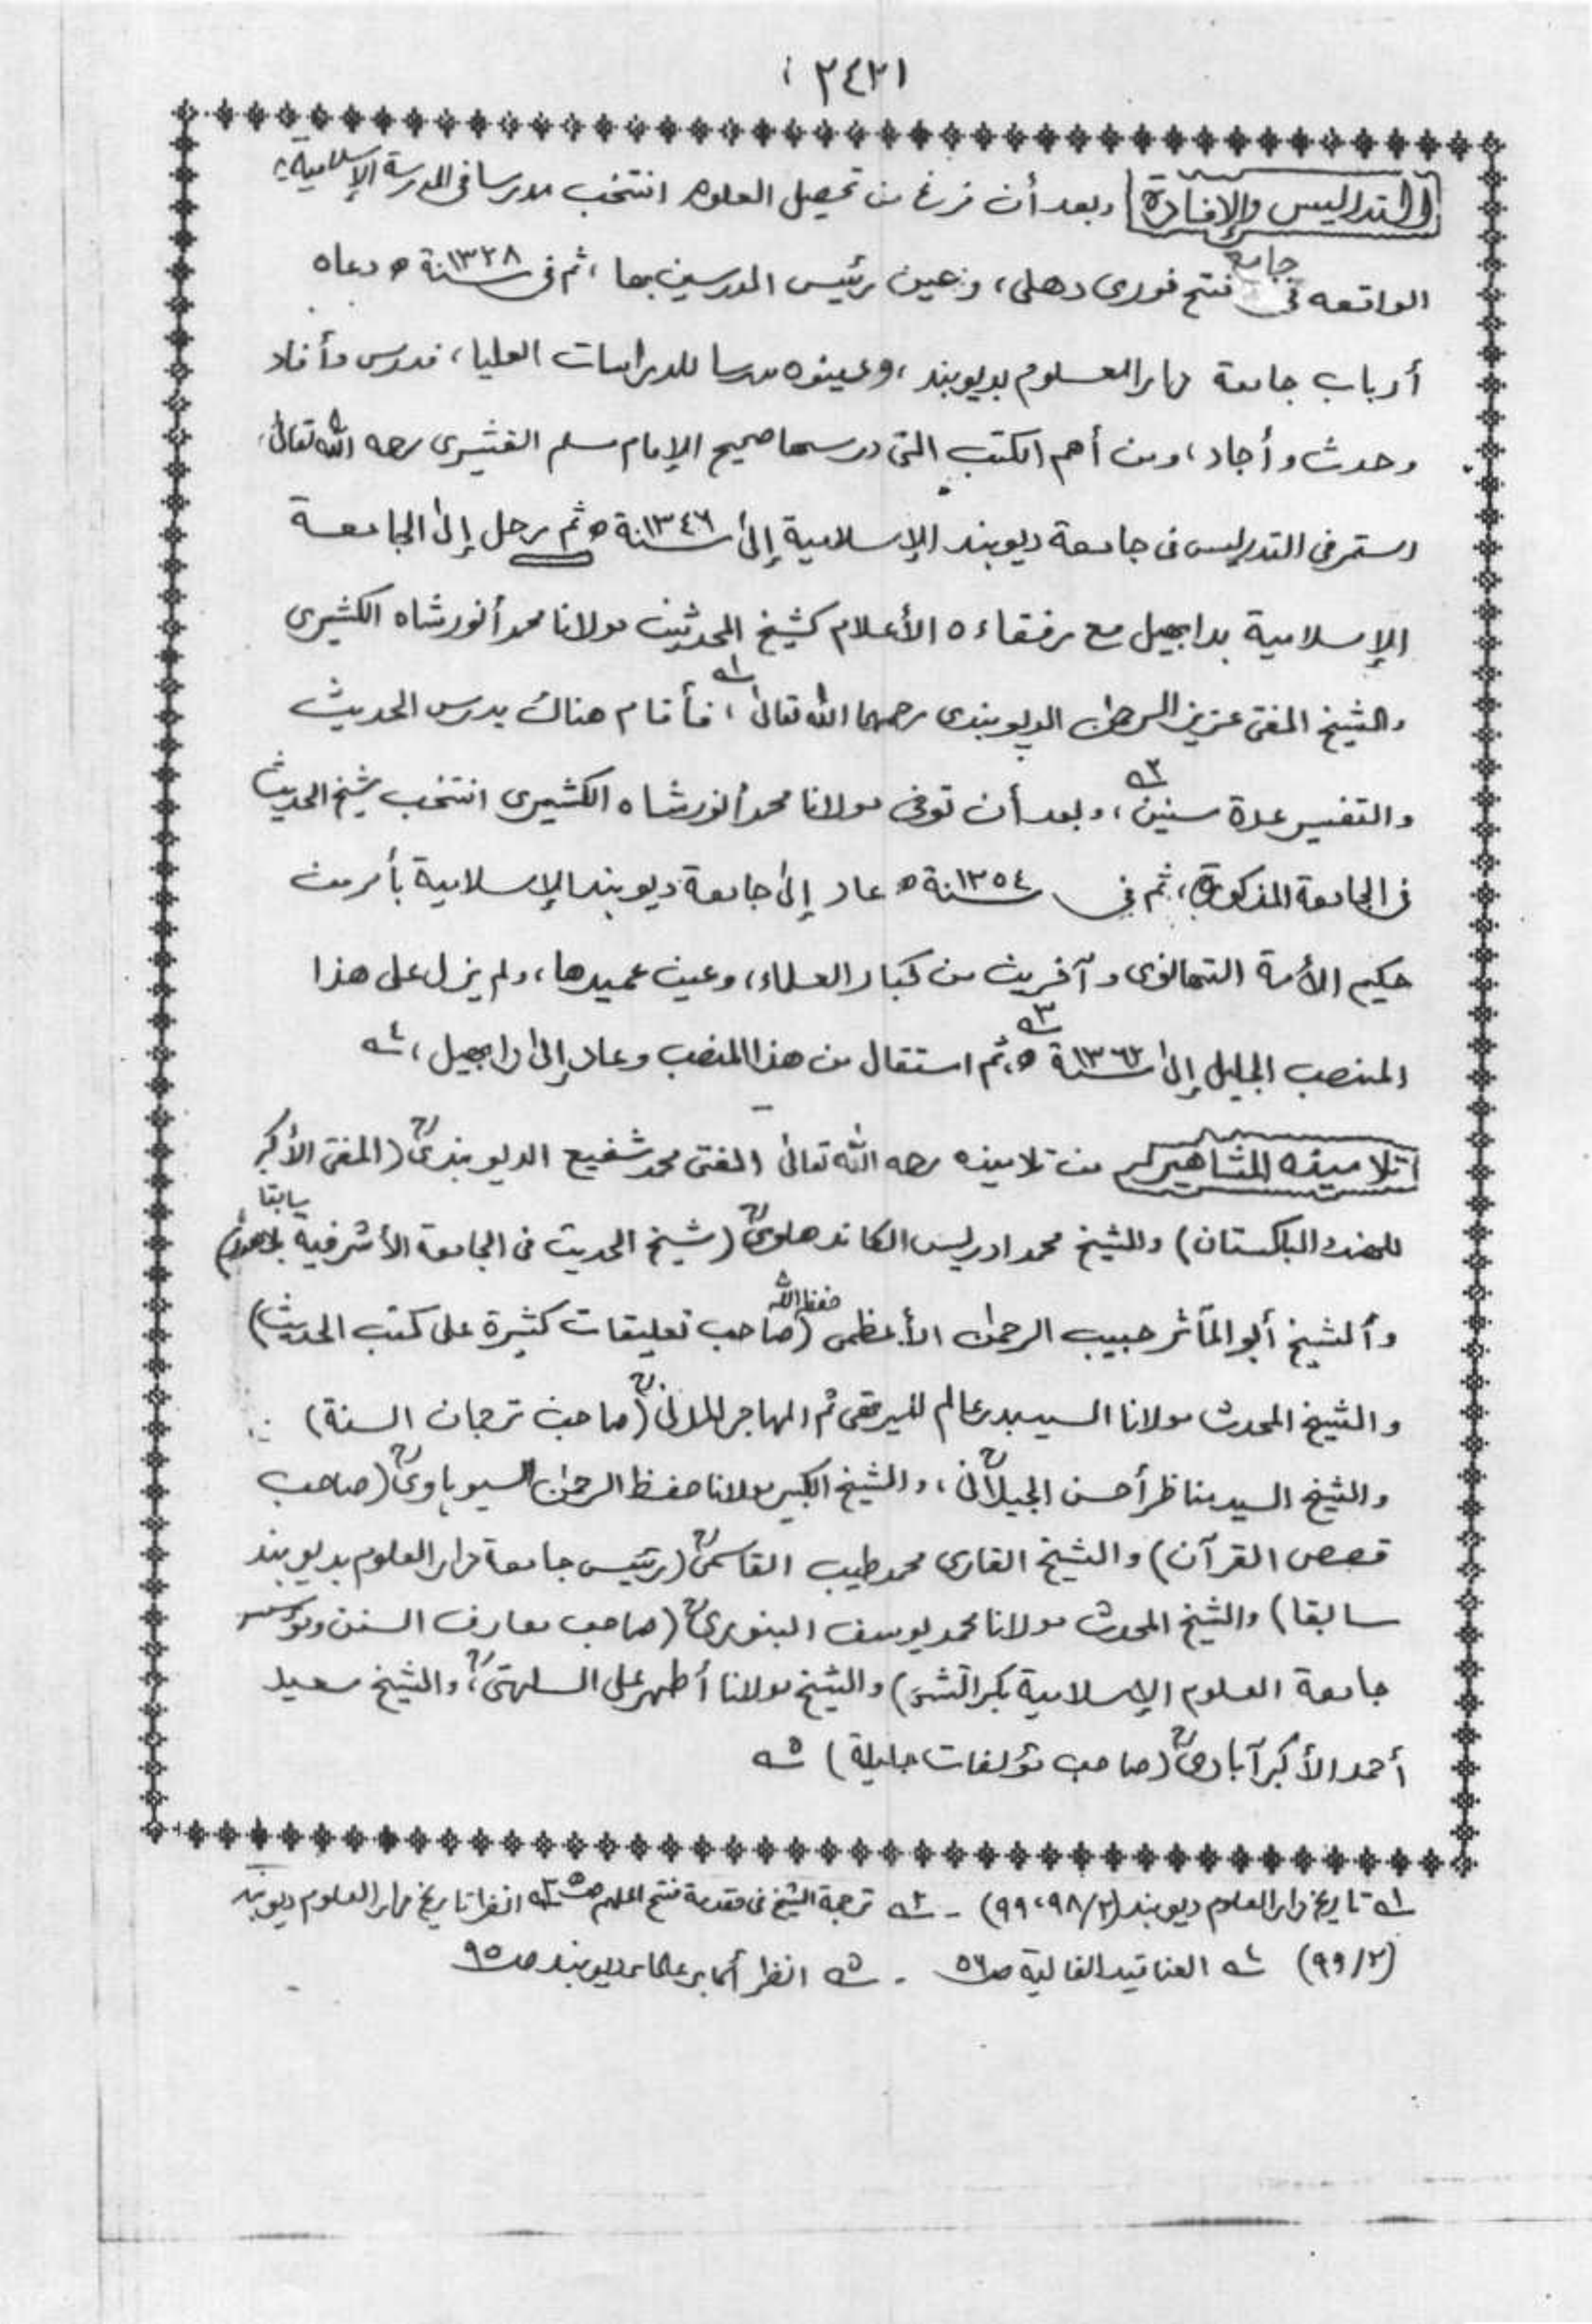 ٢٤٢١
التدريس والإفادة وبعد أن فرغ من تحصيل العلوم انتخب مدرسا فى المدرسة الإسلامية
الواقعه فى جامع فتح فورى دهلى، وعين رئيس المدرسين بها، ثم فى سنة ١٣٢٨ه دعاه
أرباب جامعة دار العلوم بديوبند، وعينوه مدرسا للدراسات العليا، فدرس وأفاد
وحدث وأجاد، ومن أهم الكتب التى درسها صحيح الإمام مسلم القشيرى رحمه الله تعالىٰ،
استمر فى التدريس فى جامعة ديوبند الإسلامية إلىٰ سنة ١٣٤٦ه ثم رحل إلىٰ الجامعة
الإسلامية بدابهيل مع رفقاءه الأعلام كشيخ المحدثين مولانا محمد أنور شاه الكشيرى
والشيخ المفتى عزيز الرحمٰن الديوبندى رحمهما الله تعالىٰ ١ه، فأقام هناك يدرس الحديث
والتفسير عدة سنين ٢ه، وبعد أن توفى مولانا محمد أنور شاه الكشميرى انتخب شيخ الحديث
فى الجامعة المذكورة، ثم فى سنة ١٣٥٤ه عاد إلىٰ جامعة ديوبند الإسلامية بأمر من
حكيم الأمة التهانوى وآخرين من كبار العلماء، وعين عميدها، ولم يزل على هذا
المنصب الجليل إلىٰ سنة ١٣٦٢ه ٣ه، ثم استقال من هذا المنصب وعاد إلىٰ دابهيل، ٤ه
تلاميذه المشاهير من تلاميذه رحمه الله تعالىٰ المفتى محمد شفيع الديوبندىؒ (المفتى الأكبر
للهند والباكستان) والشيخ محمد ادريس الكاندهلوىؒ (شيخ الحديث فى الجامعة الأشرفية بلاهور سابقا)
وألشيخ أبو المآثر حبيب الرحمٰن الأعظمى حفظه الله (صاحب تعليقات كثيرة على كتب الحديث)
والشيخ المحدث مولانا السيد بدر عالم الميرتهى ثم المهاجر المدنىؒ (صاحب ترجمان السنة)
والشيخ السيد مناظر أحسن الجيلانىؒ، والشيخ الكبير مولانا حفظ الرحمٰن السيوهاروىؒ (صاحب
قصص القرآن) والشيخ القارى محمد طيب القاسمىؒ (رئيس جامعة دار العلوم بديوبند
سابقا) والشيخ المحدث مولانا محمد يوسف البنورىؒ (صاحب معارف السنن ومؤسس
جامعة العلوم الإسلامية بكراتشى) والشيخ مولانا أطهر على السلهتىؒ، والشيخ سعيد
أحمد الأكبرآبادىؒ (صاحب مؤلفات جليلة) ٥ه
١ه تاريخ دار العلوم ديوبند (٢/٩٨،٩٩) - ٢ه ترجمة الشيخ فى مقدمة فتح الملهم ص٥ ٣ه انظر تاريخ دار العلوم ديوبند
(٢/٩٩) ٤ه العناقيد الغالية ص٥٦ - ٥ه انظر أكابر علماء ديوبند ص٩٥